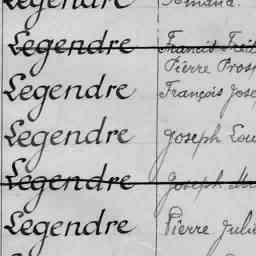 Legendre
Legendre Francis
Pierre Pros
Legendre François Jose
Legendre Joseph Lou
Legendre Joseph
Legendre Pierre Juli